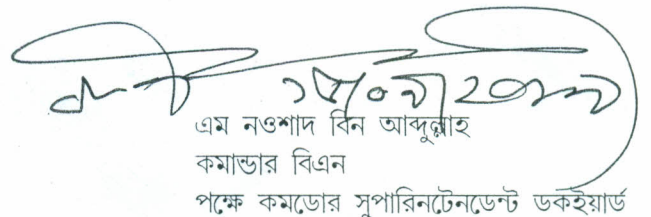 এম নওশাদ বিন আব্দুল্লাহ
কমান্ডার বিএন
পক্ষে কমডোর সুপারিনটেনডেন্ট ডকইয়ার্ড